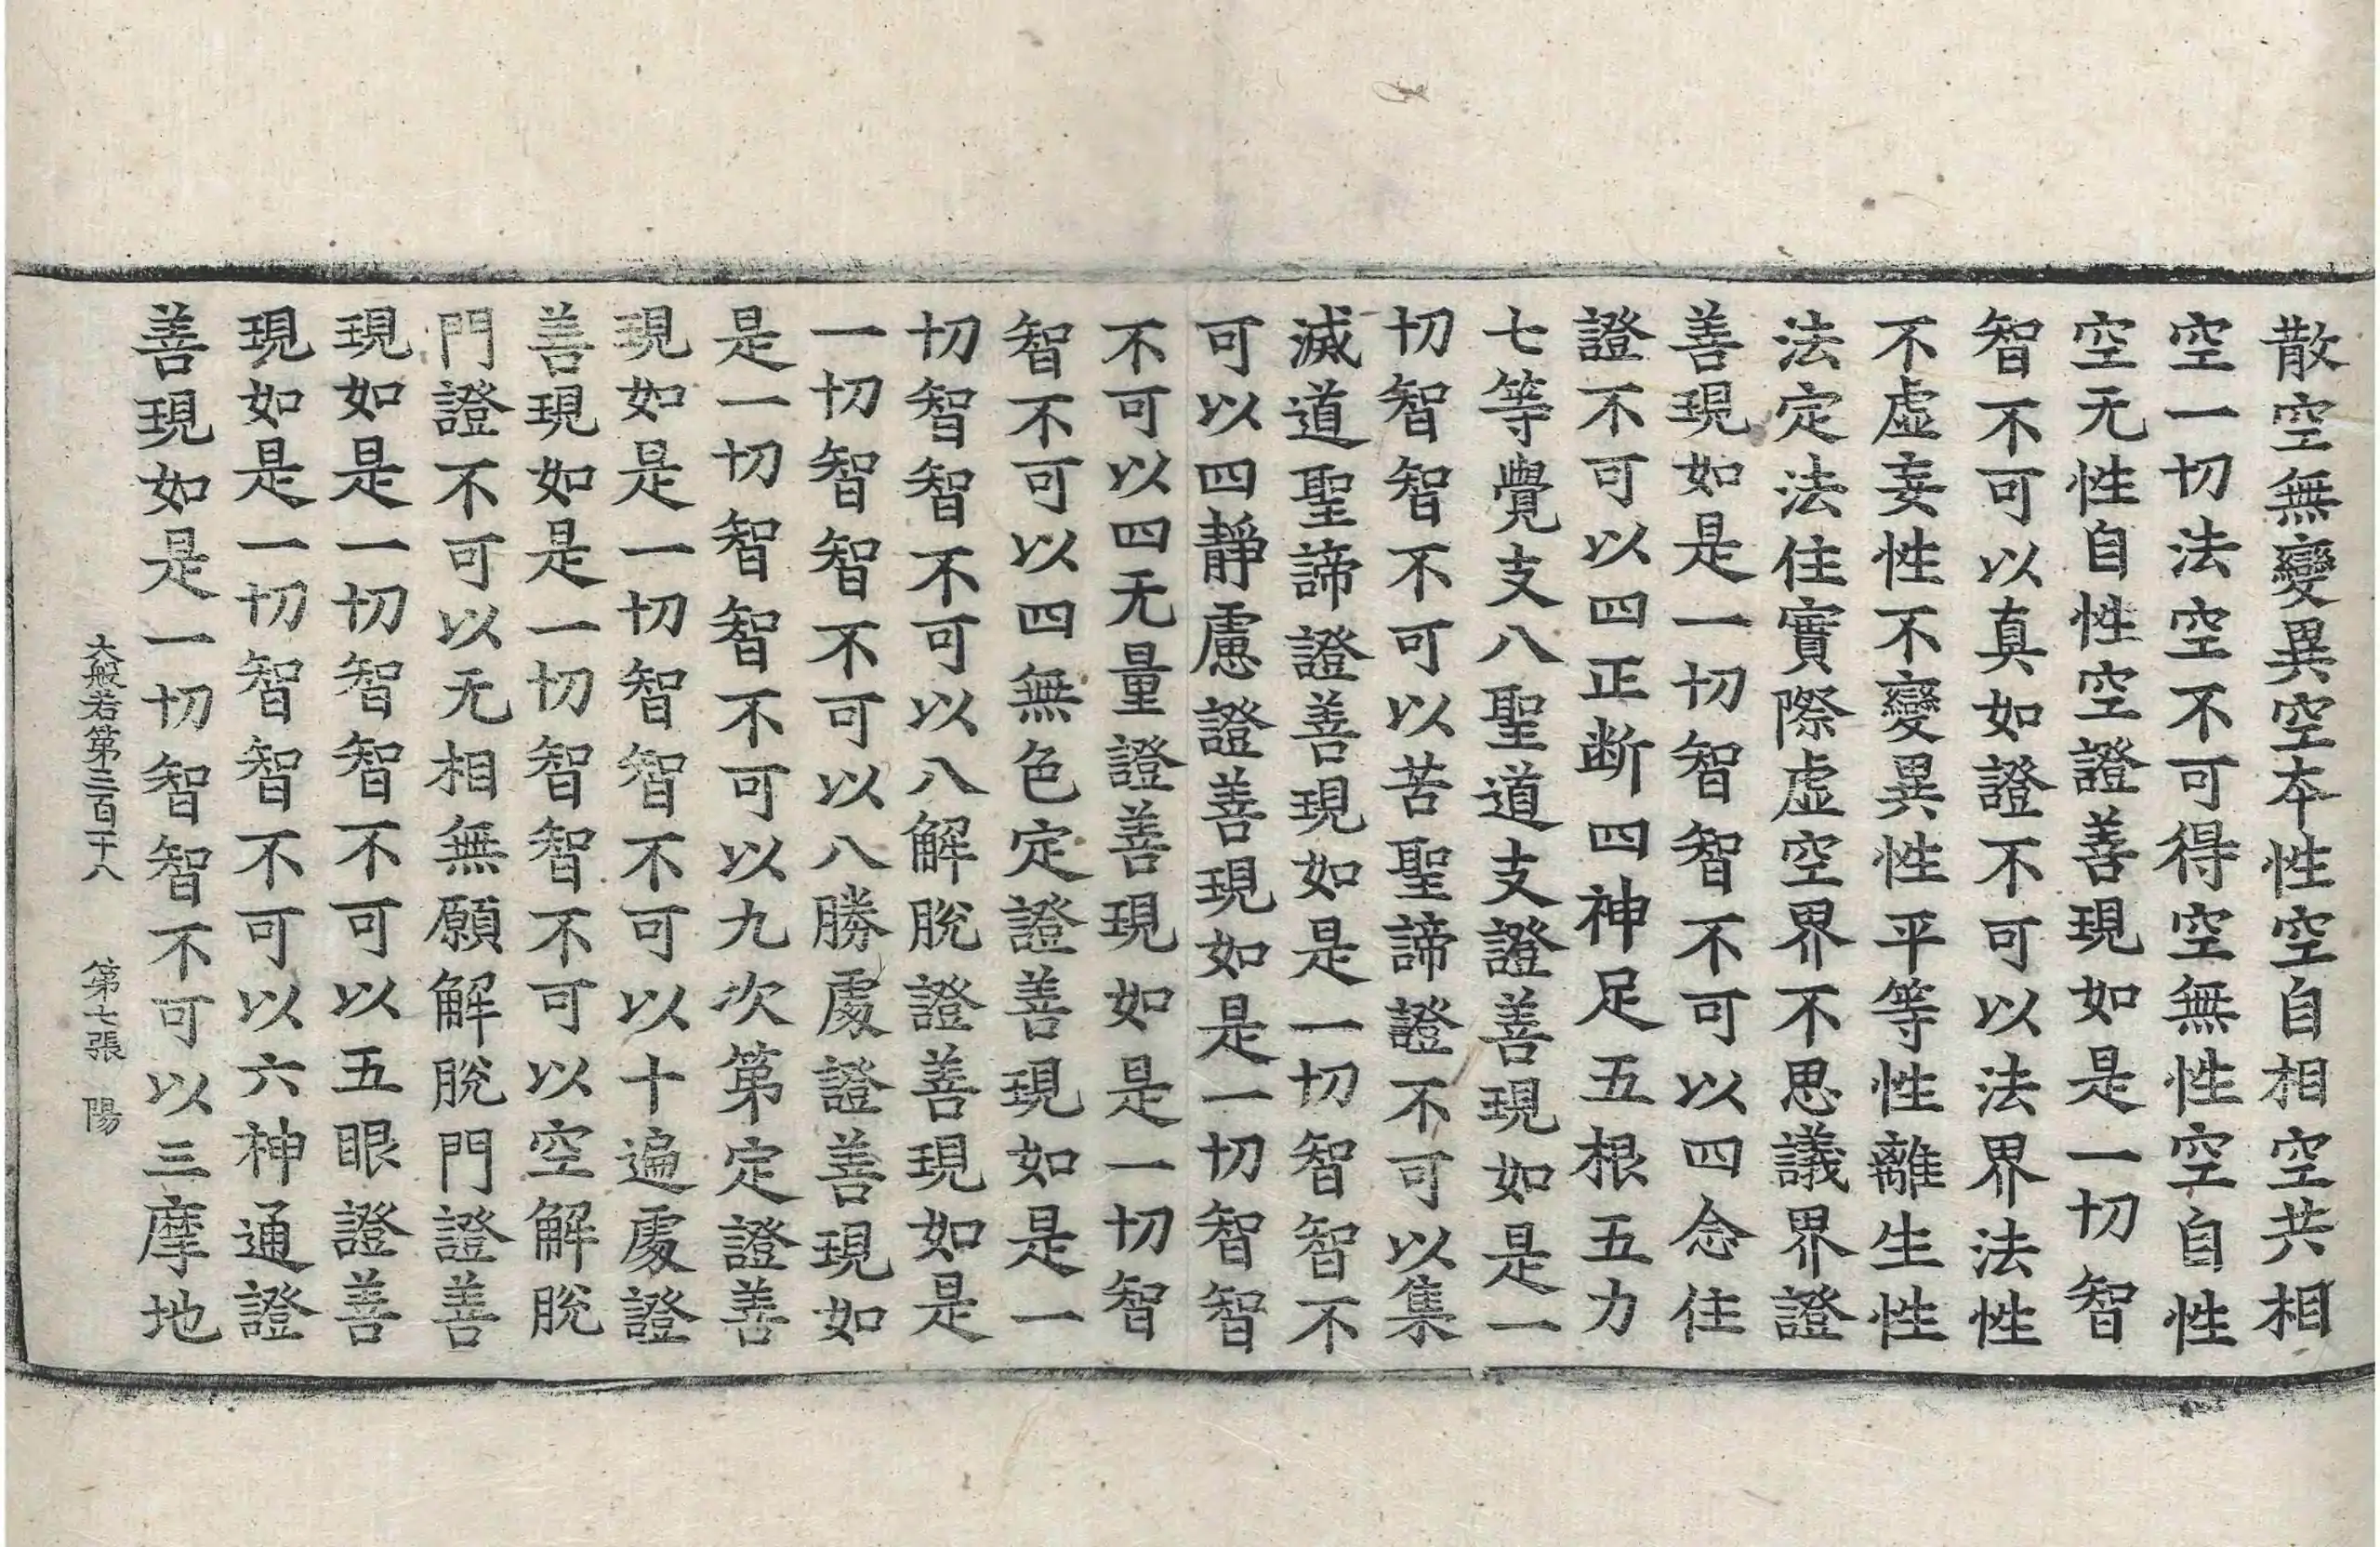 散空無變異空本性空自相空共相
空一切法空不可得空無性空自性
空无性自性空證善現如是一切智
智不可以真如證不可以法界法性
不虛妄性不變異性平等性離生性
法定法住實際虛空界不思議界證
善現如是一切智智不可以四念住
證不可以四正断四神足五根五力
七等覺支八聖道支證善現如是一
切智智不可以苦聖諦證不可以集
滅道聖諦證善現如是一切智智不
可以四靜慮證善現如是一切智智
不可以四无量證善現如是一切智
智不可以四無色定證善現如是一
切智智不可以八解脫證善現如是
一切智智不可以八勝處證善現如
是一切智智不可以九次第定證善
現如是一切智智不可以十遍處證
善現如是一切智智不可以空解脫
門證不可以无相無願解脫門證善
現如是一切智智不可以五眼證善
現如是一切智智不可以六神通證
善現如是一切智智不可以三摩地
大般若第三百二十八 第七張 陽